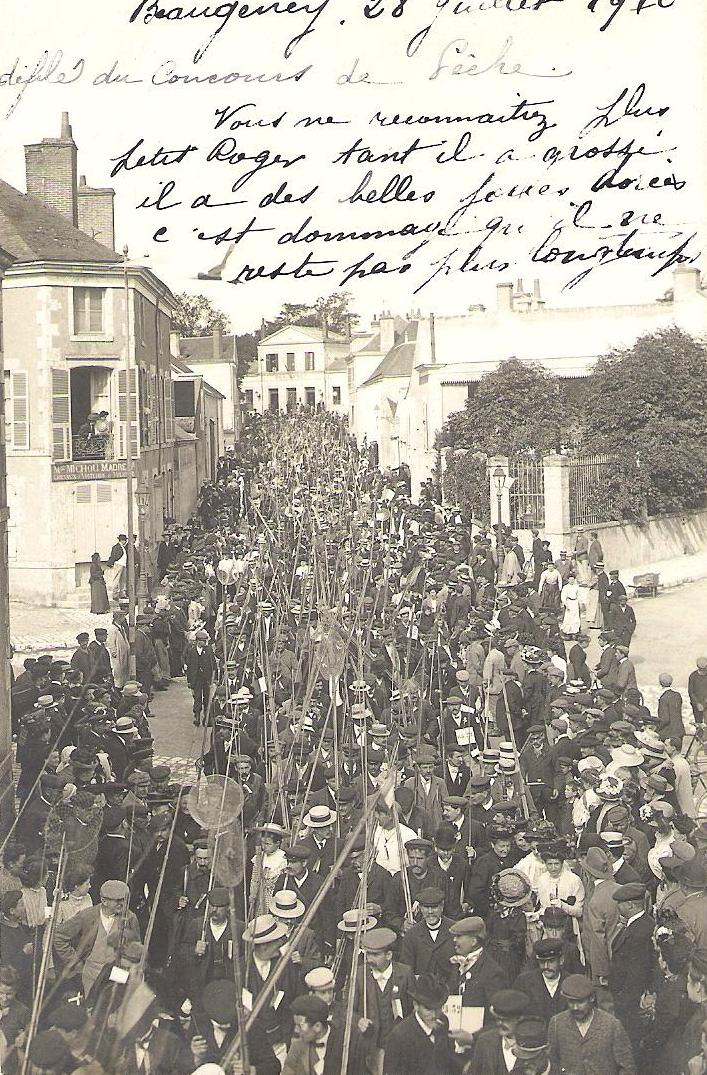 Beaugency. 28 Juillet
défilé du Concours de Pêche.
Vous ne reconnaitrez plus
petit Roger tant il a grossi
il a des belles joues
c'est dommage qu'il ne
reste pas plus longtemps
MICHOU MADRE